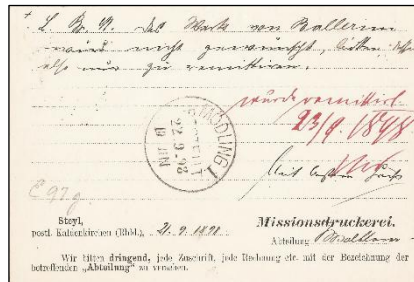 Das Werk von Ballerini
wird nicht gewünscht, bitten
also nur zu remittiren.
MÖDLING 1
22.9.98
wurde remittirt
23/9. 1898
Mit
Steyl,
postl. Kaldenkirchen (Rhld.), 21. 9. 1898
Missionsdruckerei.
Abteilung
Wir bitten dringend, jede Zuschrift, jede Rechnung etc. mit der Bezeichnung der
betreffenden „Abteilung" zu versehen.